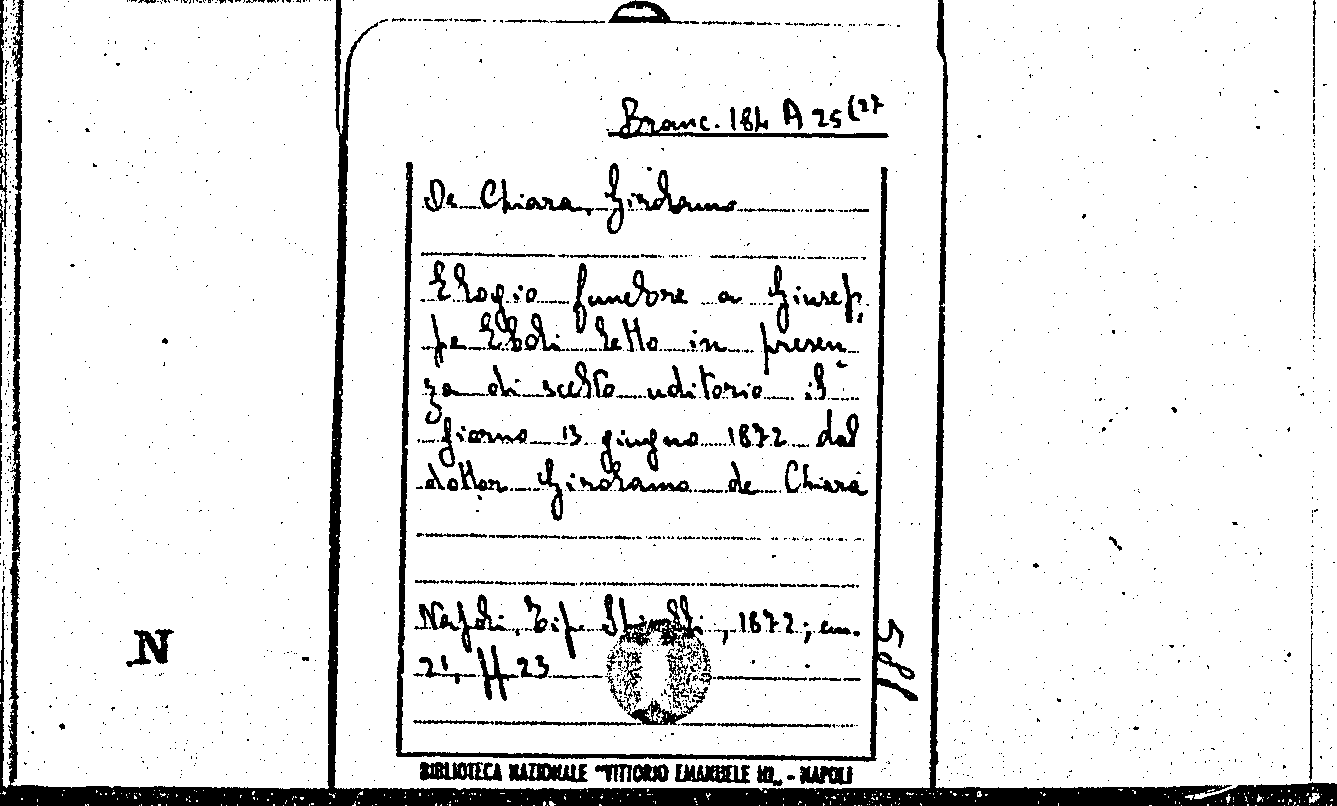 Branc. 184 A 25(27
De Chiara, Girolamo
Elogio funebre a Giusep,
pe Eboli letto in presen
za di scelto uditorio il
giorno 13 giugno 1872 dal
dottor Girolamo de Chiara
Napoli, Tip. , 1872; cm.
21, pp 23
588
N
BIBLIOTECA NAZIONALE "VITTORIO EMANUELE III„ - NAPOLI